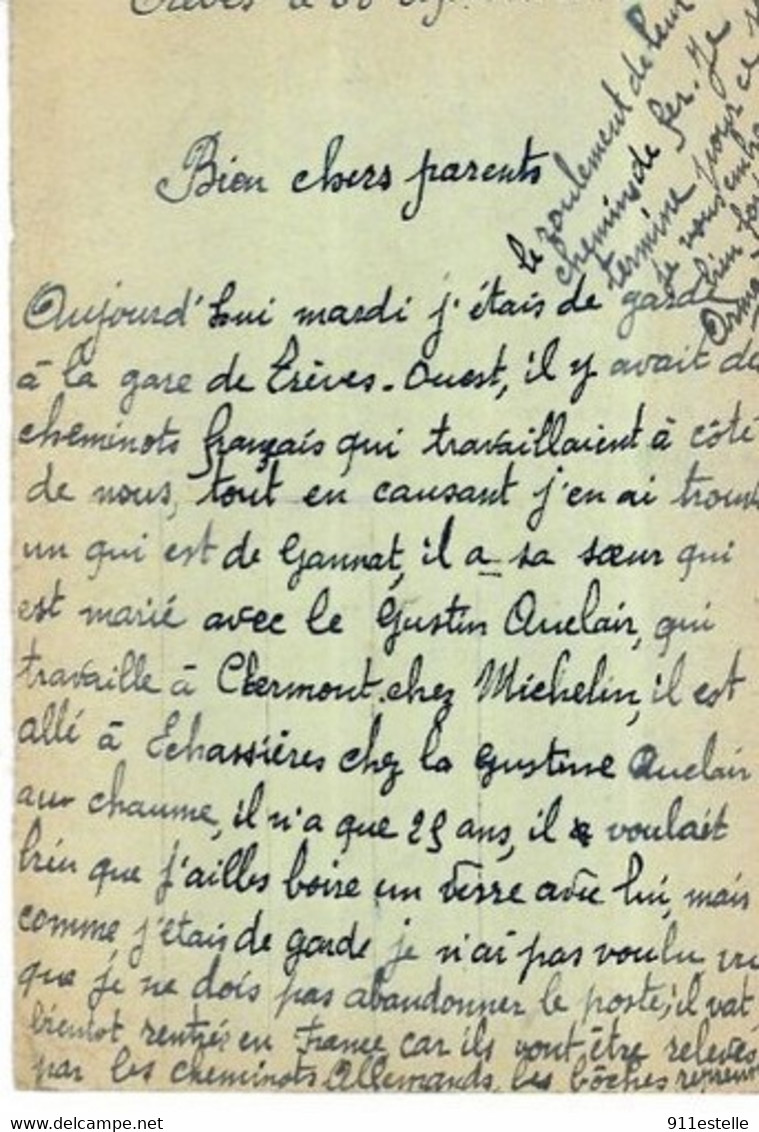 Bien chers parents
Aujourd'hui mardi j'étais de garde
à la gare de Trèves-Ouest, il y avait de
cheminots français qui travaillaient à côté
de nous, tout en causant j'en ai trouv
un qui est de Gannat, il a sa sœur qui
est marié avec le Gustin Auclair, qui
travaille à Clermont chez Michelin, il est
allé à Echassières chez la Gustine Auclair
au chaume, il n'a que 25 ans, il voulait
bien que j'ailles boire un verre avec lui, mais
comme j'étais de garde je n'ai pas voulu, vu
que je ne dois pas abandonner le poste, il vat
bientot rentrér en France car ils vont être relevés
par les cheminots Allemands, les bôches reprenn
le roulement de leur
chemins de fer. Je
termine pour ce
je vous embra
bien for
Arma
Delcampe.com
911estelle